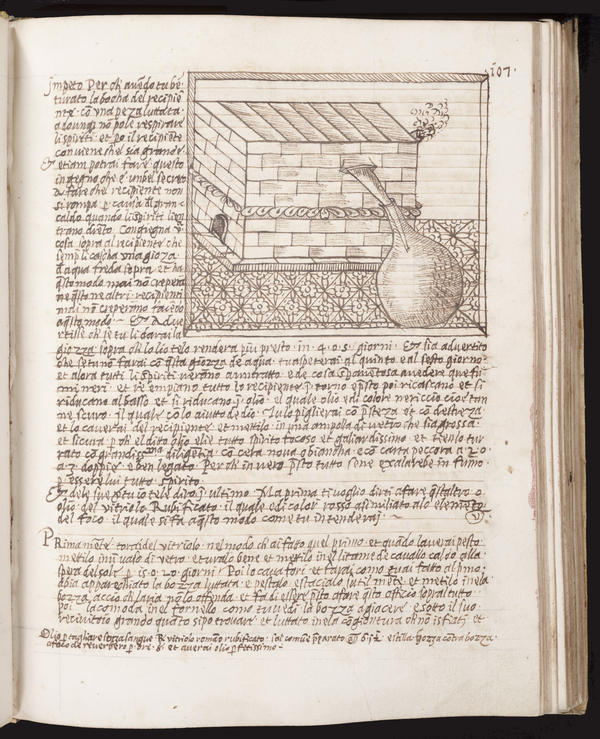 107
impeto Per ch avēdo tu be
turato la bocha del recipie
nte cō vna peza lutata
adounq̄ nō pole respirare
li spireti et po il recipiēte
conviene che sia grande
Et etiam potrai fare questo
ingegno che è un bel secreto
di fare che il recipiente non
si rompa p causa dl gran
caldo quando li spiriti
trano dreto Congregna vͣ
cosa sopra al recipiente che
semp li cascha vna gioza
d aqua freda sopra et ha
q̄sto modo mai nō crepera
ne q̄sto ne altri recipienti
mai nō creperano facēdo
a q̄sto modo Et Adue
rtisse ch se tu li darai la
giozza sopra ch lo lio telo rendera piu presto in 4 o 5 giorni Et sia advertito
che se tu nō farai cō q̄sta giozza de aqua tu aspeterai al quinto e al sesto giorno
et alora tutti li spiriti verano a un tratto e de cosa spauetosa a vedere que fu
mi neri et re empiano tutto lo recipiente torno e p̄sto poi ricascano et si
riducano al basso et si riducano olio el quale olio e di colore nericcio cioe tan
ne scuro il quale cō lo aiuto de dio Tu lo piglierai cō p̄steza et cō destreza
et lo cauerai del recipiente et mettilo in una ampola di vetro che sia grossa
et sicura p ch el dito olio elie tutto spirito focoso et galiardissimo et tienlo tur
rato cō grandissima diligētia cō cera nova q̄ bianca e cō carta peccora a 2 o
a 3 doppie e ben legato Per ch in vero p̄sto tutto se ne exalarebe in fumo
p essere lui tutto spirito
Et del sue tele diro l ultimo Ma prima ti voglio dirti a fare q̄st altro o
olio del vitriolo Rubificato il quale e di color rosso asimiliato alo elemēto
del foco il quale si fa a q̄sto modo come tu intenderai
PRima mēte torai del vitriolo nel modo ch ai fatto quel primo et quādo laverai pesto
metilo in uͣ valo di vetro et turalo bene et metilo inel litame de cauallo caldo alla
spera del sole p 15 o 20 giorni Poi lo caua fori et fa poi come tu ai fato al primo
abia apparechiato la bozza lutada e pestalo estacialo sutilmēte et metilo inela
bozza accio ch laria nō lo ofenda et fa di essere p̄sto afare q̄sto officio sopra l tutto
poi la comoda inel fornello como tu vedi la bozza a giacere e sotto il suo
recivitoio grando quāto si po trouare et luttato inela cōgiontura ch nō isfiati et
Olio p tagliare senza sangue R vitriolo romāo rubificato sal comūe p̄parato estilla bozza contra bozza
a foco de reverbero p ore 8 et averai olio p fetissimo